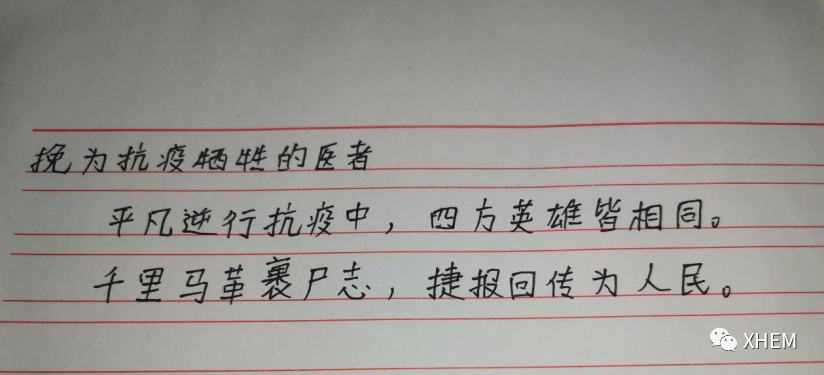 挽为抗疫牺牲的医者
平凡逆行抗疫中，四方英雄皆相同。
千里马革裹尸志，捷报回传为人民。
XHEM